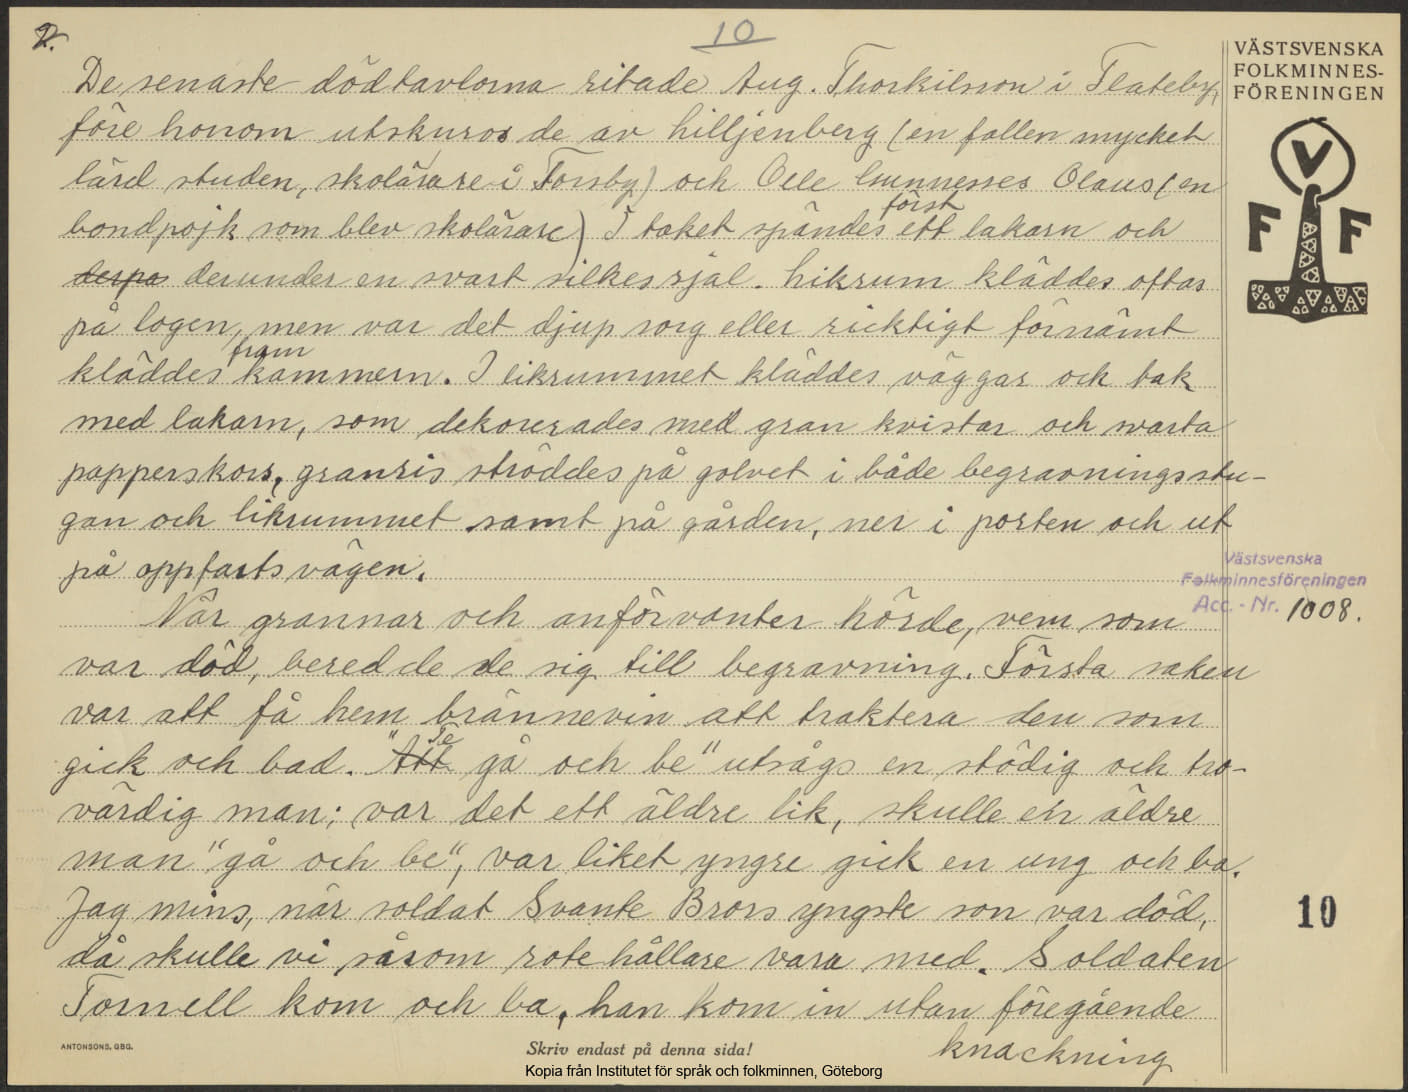 2.
10
De senaste dödtavlorna ritade Aug. Thorkilsson i Flateby,
före honom utskuros de av Lilljenberg (en fallen mycket
lärd studen, skolärare i Forsby) och Olle Gunneses Olaus (en
bondpojk som blev skolärare) I taket spändes först ett lakarn och
derpå derunder en svart silkessjal. Likrum kläddes oftas
på logen, men var det djup sorg eller ricktigt förnämt
kläddes fram kammern. I likrummet kläddes väggar och tak
med lakarn, som dekorerades med gran kvistar och svarta
papperskors, granris ströddes på golvet i både begravningsstu-
gan och likrummet samt på gården, ner i porten och ut
på oppfartsvägen.
När grannar och anförvanter hörde, vem som
var död, beredde de sig till begravning. Första saken
var att få hem brännevin att traktera den som
gick och bad. "Att Te gå och be" utsågs en stödig och tro-
värdig man; var det ett äldre lik, skulle en äldre
man "gå och be", var liket yngre gick en ung och ba.
Jag mins, när soldat Svante Brors yngste son var död,
då skulle vi såsom rotehållare vara med. Soldaten
Tornell kom och ba, han kom in utan föregående
knackning
VÄSTSVENSKA
FOLKMINNES-
FÖRENINGEN
V
F F
Västsvenska
Folkminnesföreningen
Acc. - Nr. 1008.
10
ANTONSONS, GBG.
Skriv endast på denna sida!
Kopia från Institutet för språk och folkminnen, Göteborg